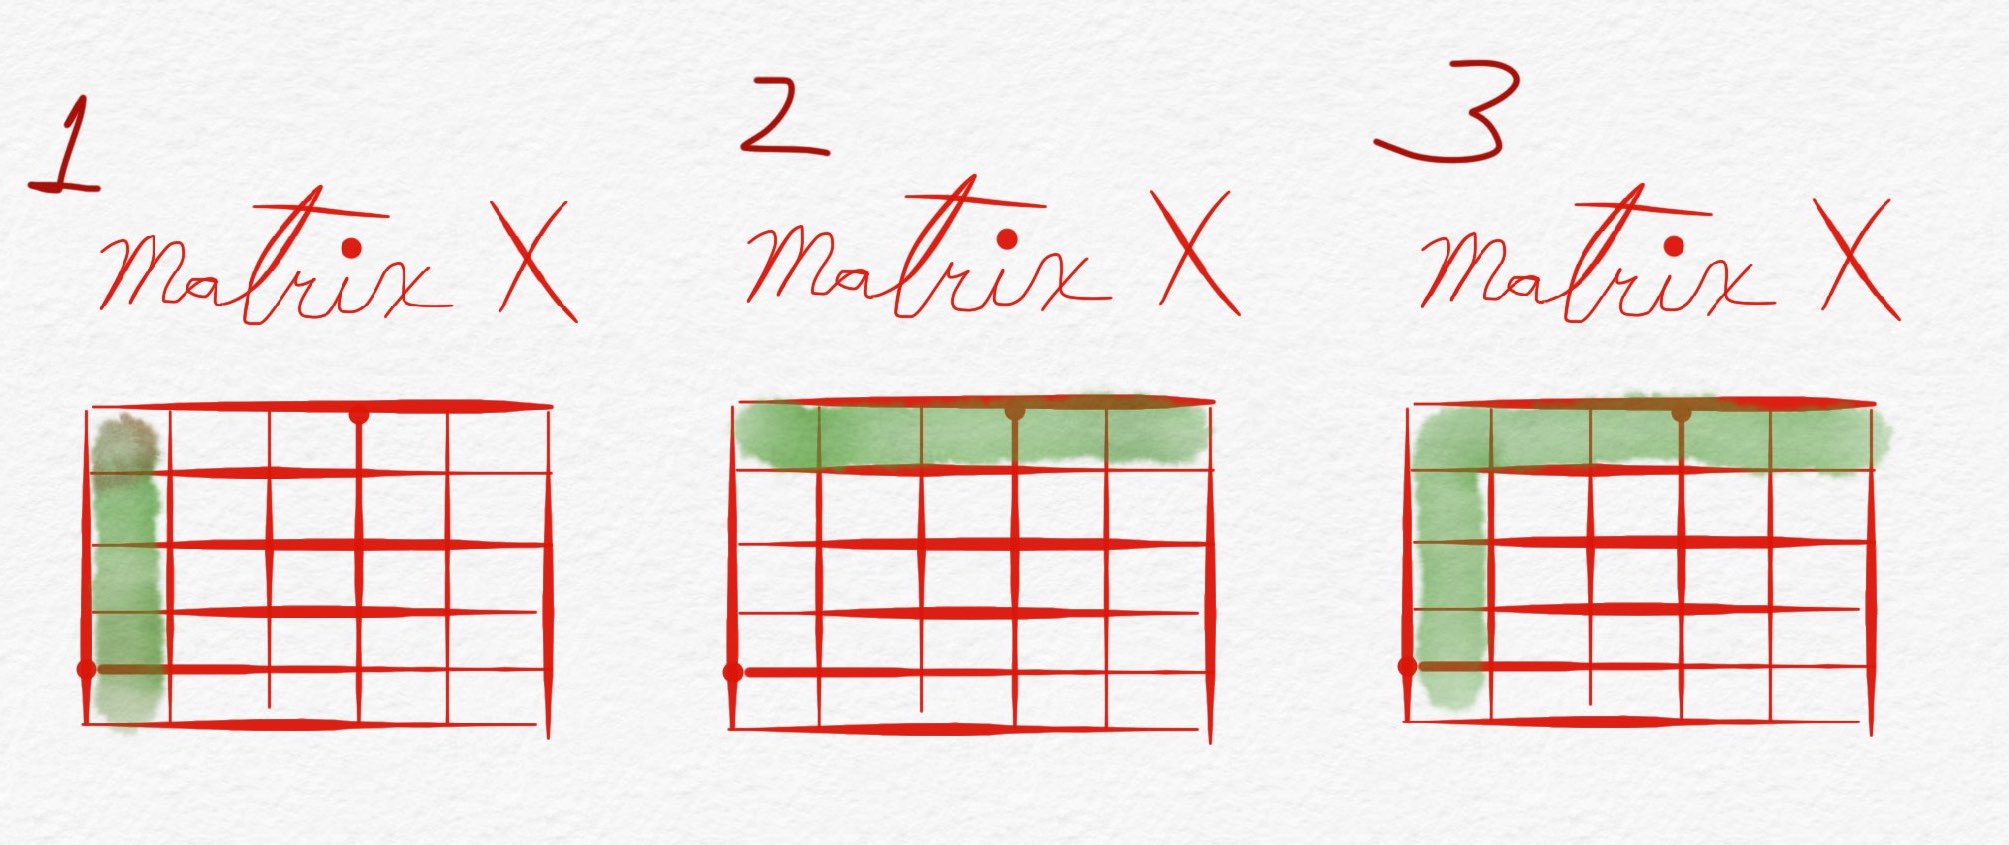 1
Matrix X
2
Matrix X
3
Matrix X